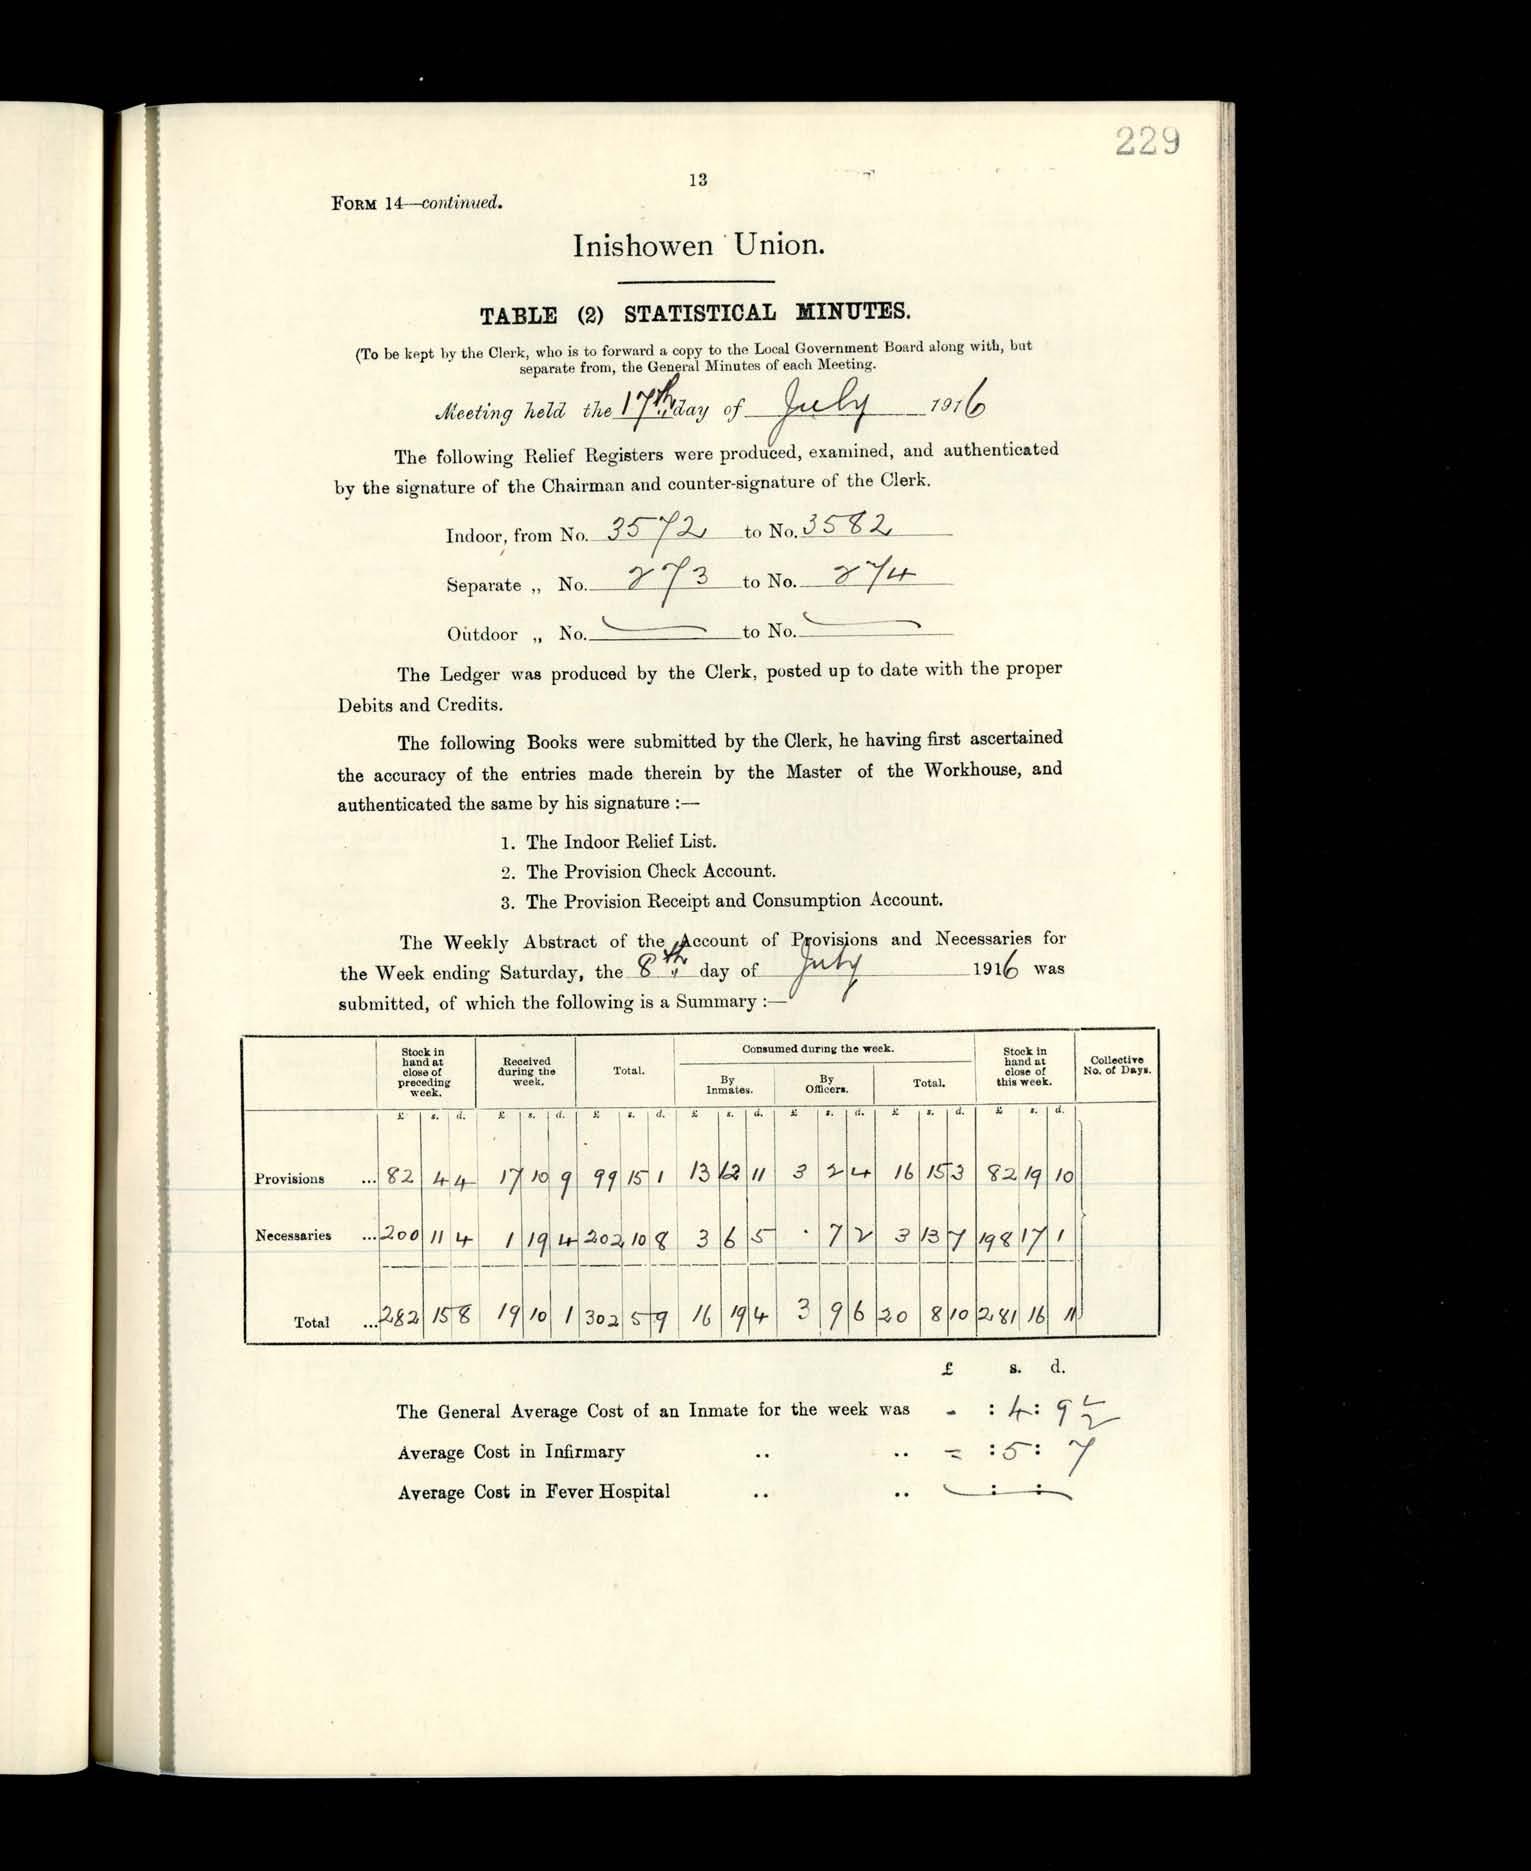 229
13
FORM 14—continued.
Inishowen Union.
TABLE (2) STATISTICAL MINUTES.
(To be kept by the Clerk, who is to forward a copy to the Local Government Board along with, but
separate from, the General Minutes of each Meeting.
Meeting held the 17th day of July 1916
The following Relief Registers were produced, examined, and authenticated
by the signature of the Chairman and counter-signature of the Clerk.
Indoor, from No. 3572 to No. 3582
Separate „ No. 273 to No. 274
Outdoor „ No. to No.
The Ledger was produced by the Clerk, posted up to date with the proper
Debits and Credits.
The following Books were submitted by the Clerk, he having first ascertained
the accuracy of the entries made therein by the Master of the Workhouse, and
authenticated the same by his signature :—
1. The Indoor Relief List.
2. The Provision Check Account.
3. The Provision Receipt and Consumption Account.
The Weekly Abstract of the Account of Provisions and Necessaries for
the Week ending Saturday, the 8th day of July 1916 was
submitted, of which the following is a Summary :—
Stock in hand at close of preceding week. Received during the week. Total. Consumed during the week. Stock in hand at close of this week. Collective No. of Days.
By Inmates. By Officers. Total.
£ s. d. £ s. d. £ s. d. £ s. d. £ s. d. £ s. d. £ s. d.
Provisions ... 82 4 4 17 10 9 99 15 1 13 12 11 3 2 4 16 15 3 82 19 10
Necessaries ... 200 11 4 1 19 4 202 10 8 3 6 5 . 7 2 3 13 7 198 17 1
Total ... 282 15 8 19 10 1 302 5 9 16 19 4 3 9 6 20 8 10 281 16 11
£ s. d.
The General Average Cost of an Inmate for the week was - : 4 : 9 ½
Average Cost in Infirmary .. .. = : 5 : 7
Average Cost in Fever Hospital .. .. : :